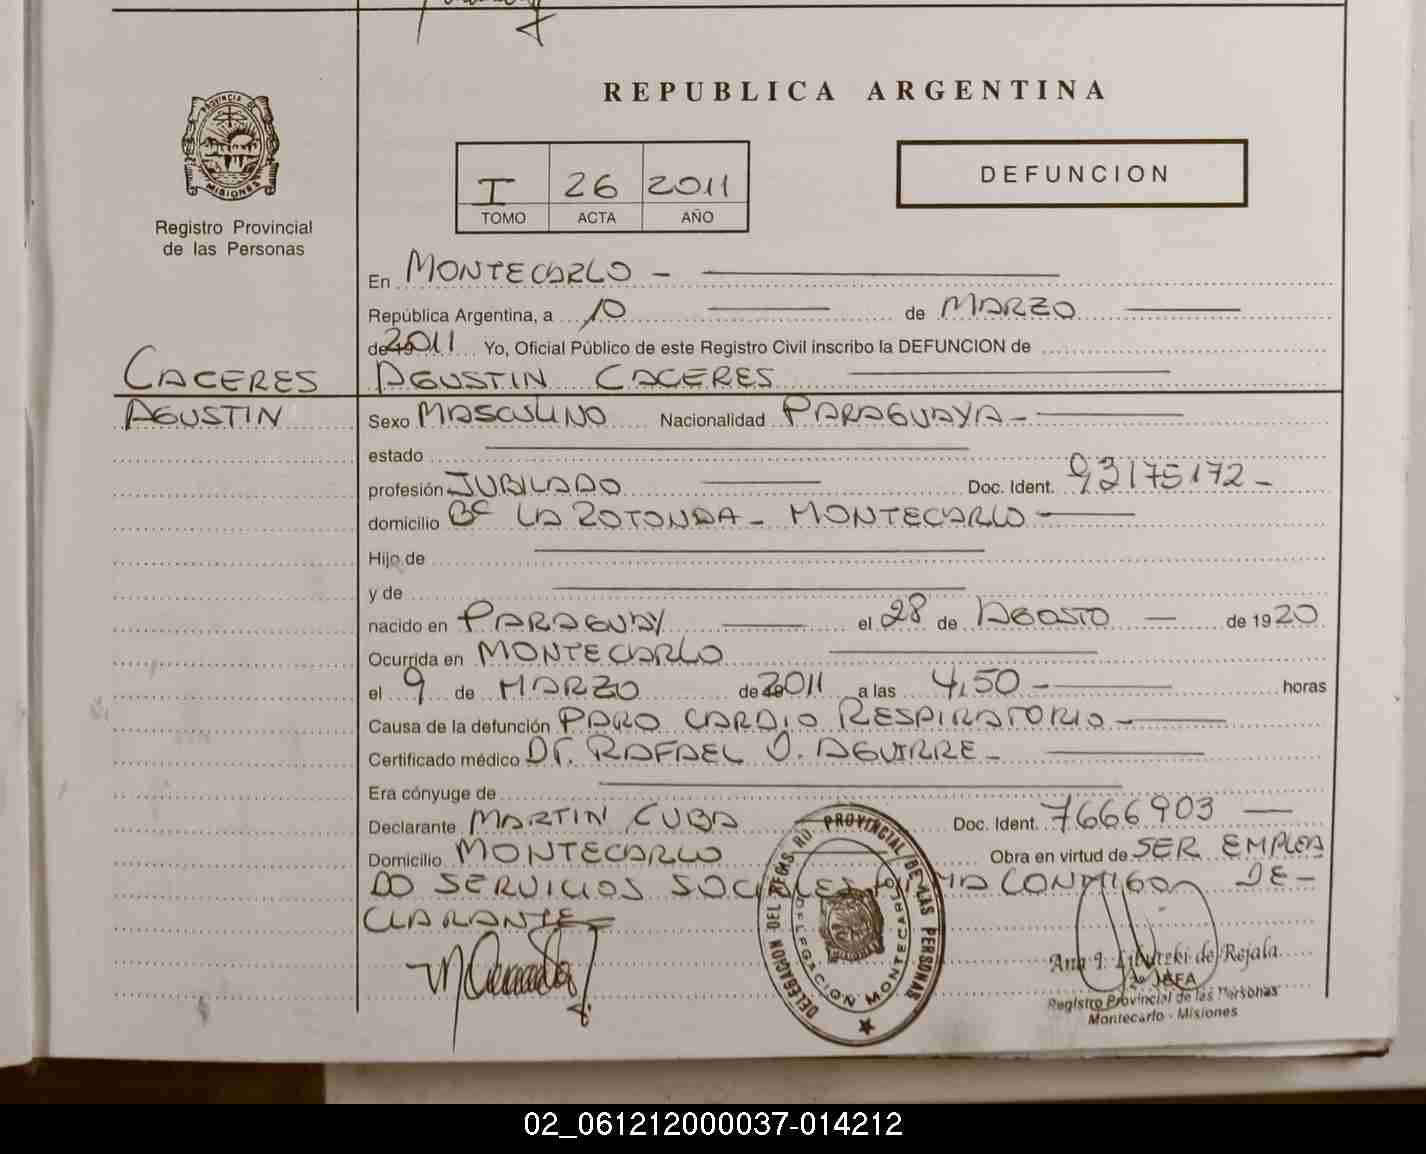 REPUBLICA ARGENTINA
PROVINCIA DE
MISIONES
Registro Provincial
de las Personas
I 26 2011
TOMO ACTA AÑO
DEFUNCION
En MONTECARLO -
República Argentina, a 10 de MARZO
de 2011 Yo, Oficial Público de este Registro Civil inscribo la DEFUNCION de
CACERES AGUSTIN CACERES
AGUSTIN Sexo MASCULINO Nacionalidad PARAGUAYA -
estado
profesión JUBILADO Doc. Ident. 93175172 -
domicilio Bº LA ROTONDA - MONTECARLO -
Hijo de
y de
nacido en PARAGUAY el 28 de AGOSTO de 1920
Ocurrida en MONTECARLO
el 9 de MARZO de 2011 a las 4,50 - horas
Causa de la defunción PARO CARDIO RESPIRATORIO -
Certificado médico DR. RAFAEL O. AGUIRRE -
Era cónyuge de
Declarante MARTIN CUBA Doc. Ident. 7666903
Domicilio MONTECARLO Obra en virtud de SER EMPLEA
DO SERVICIOS SOCIALES FIRMA CONMIGO DE-
CLARANTE
DELEGACION DEL REGIS. RO PROVINCIAL DE LAS PERSONAS
DELEGACION MONTECARLO
de Rejala
2º JEFA
Registro Provincial de las Personas
Montecarlo - Misiones
02_061212000037-014212